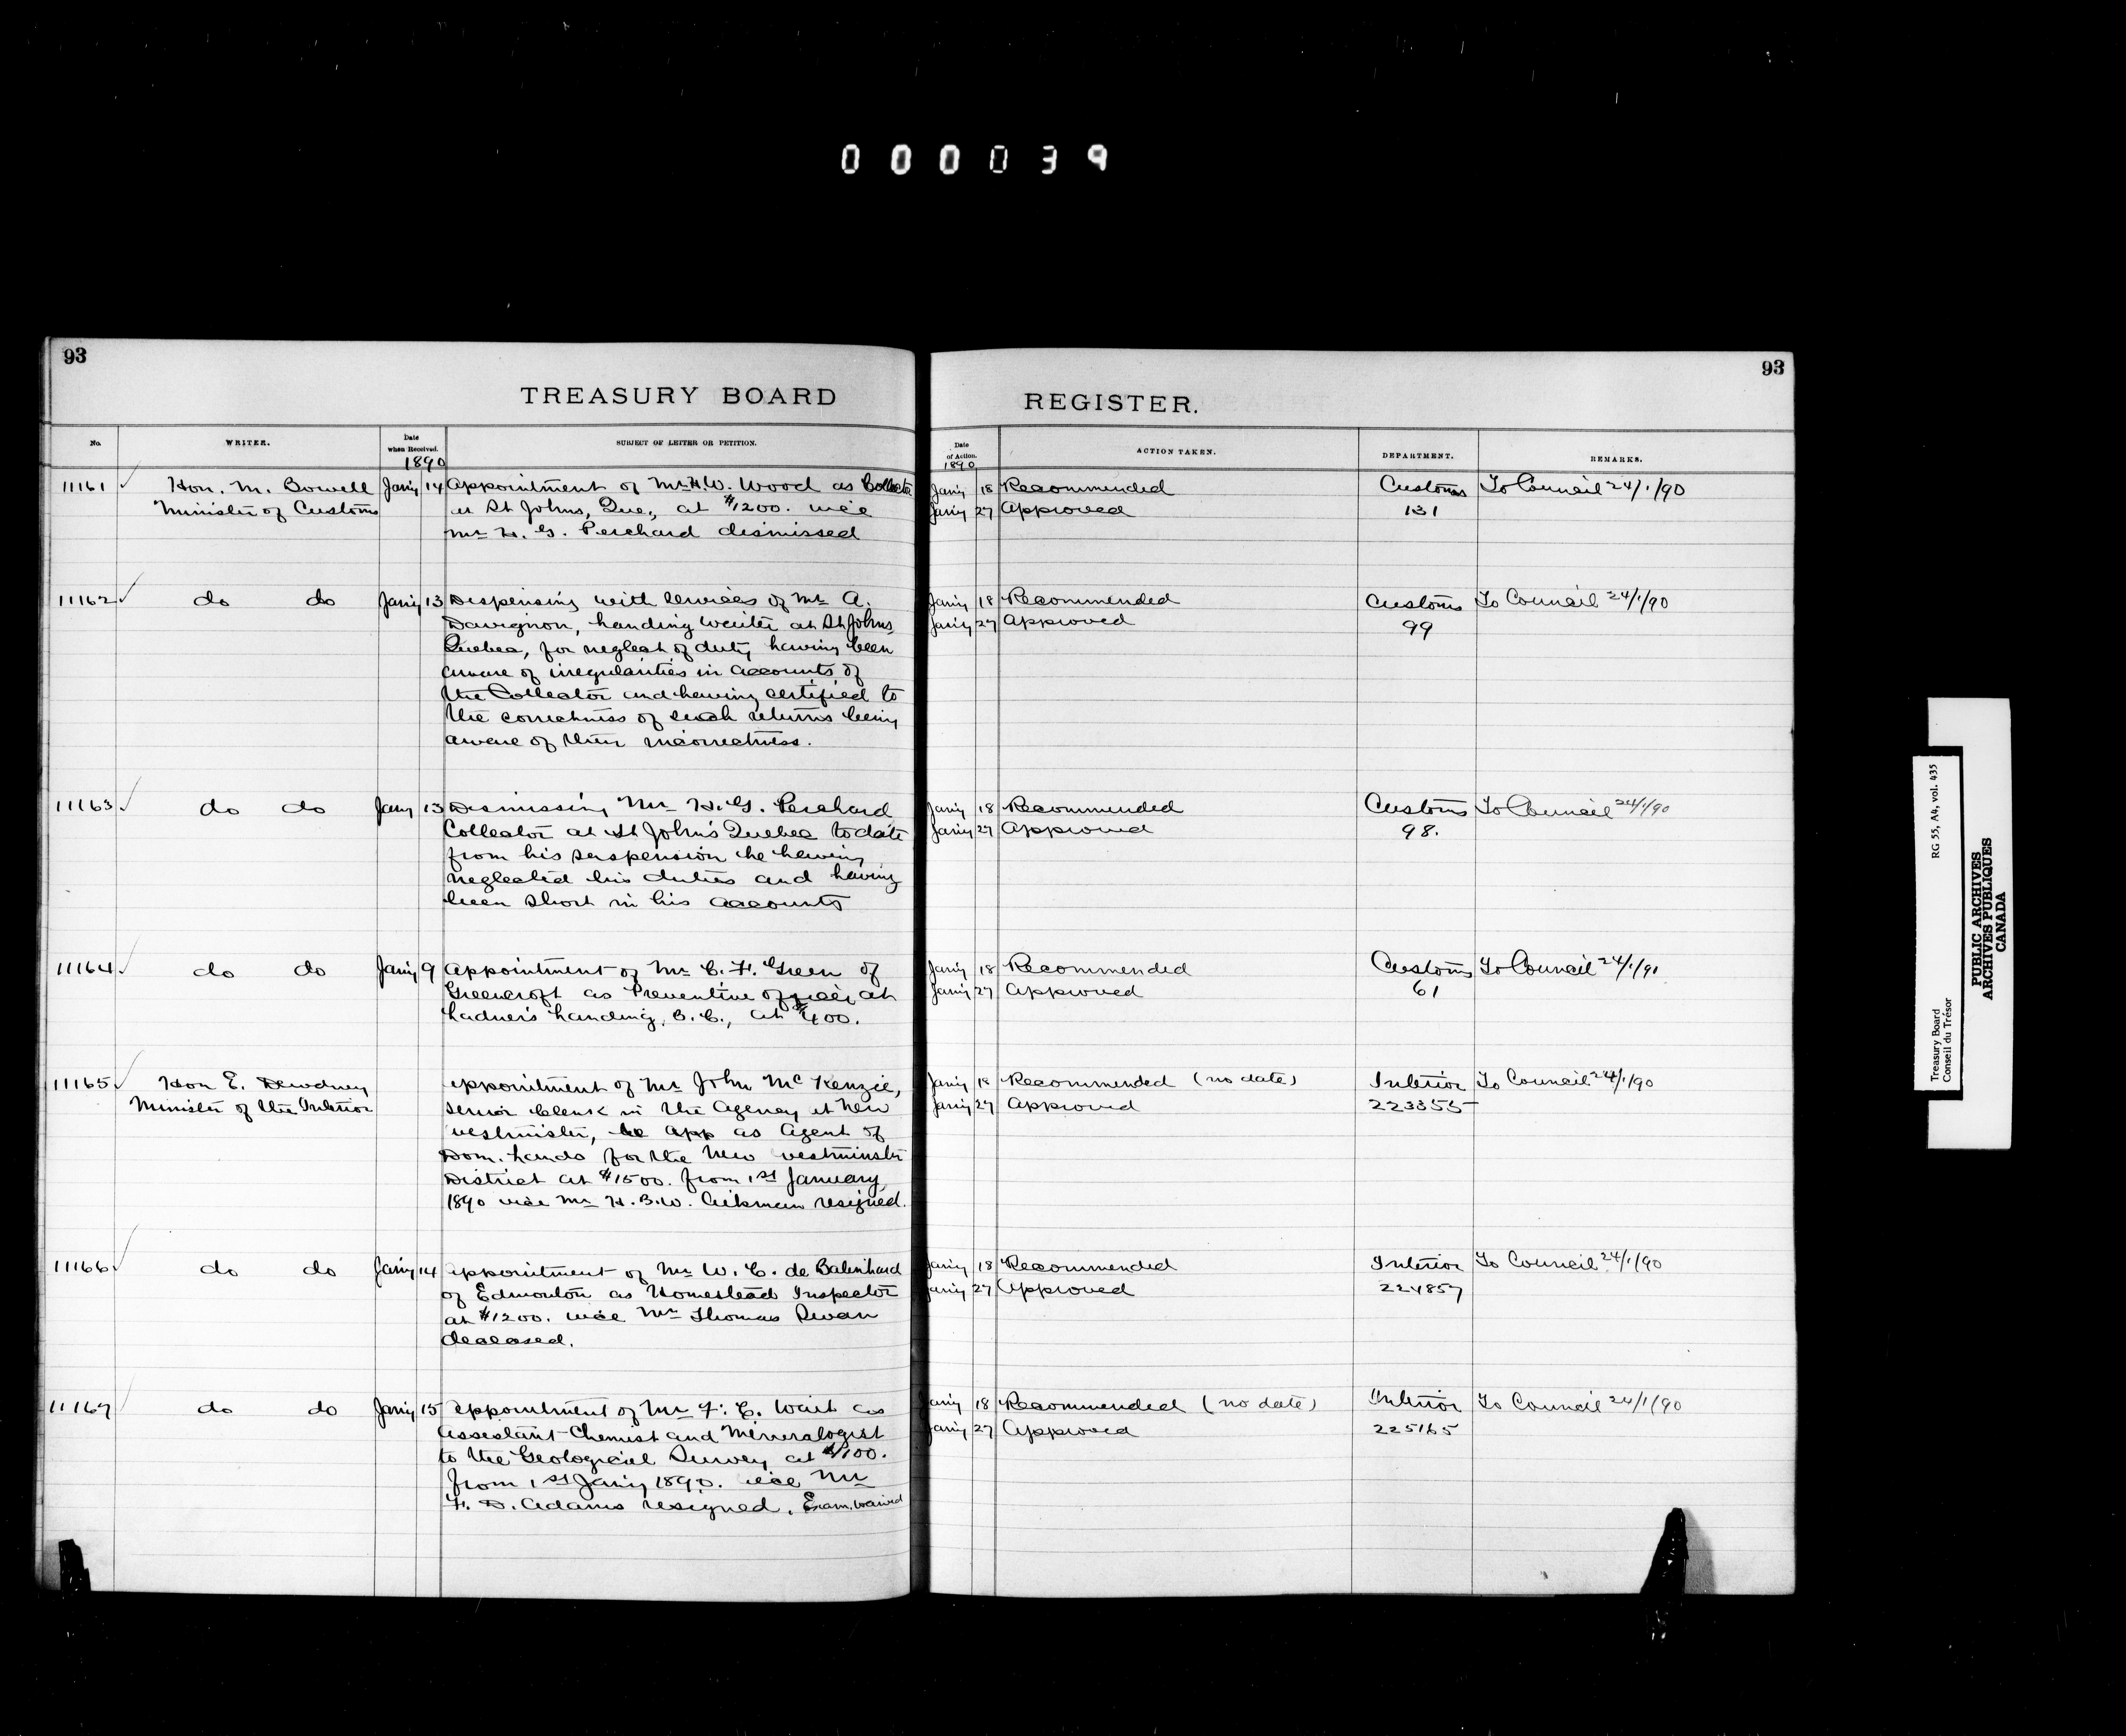 000039
93
TREASURY BOARD
No.
WRITER.
Date
when Received.
SUBJECT OF LETTER OR PETITION.
1890
11161 Hon. M. Bowell Jany 14 Appointment of Mr H.W. Wood as Collector
Minister of Customs at St Johns, Que, at $1200. vice
Mr H. G. Perchard dismissed
11162 do do Jany 13 Dispensing with services of Mr A.
Davignon, Landing Waiter at St Johns
Quebec, for neglect of duty having been
aware of irregularities in accounts of
the Collector and having certified to
the correctness of such returns being
aware of their incorrectness.
11163 do do Jany 13 Dismissing Mr H. G. Perchard
Collector at St John's Quebec to date
from his suspension he having
neglected his duties and having
been short in his accounts
11164 do do Jany 9 Appointment of Mr C. F. Green of
Greencroft as Preventive officer at
Ladner's Landing, B.C., at $400.
11165 Hon E. Dewdney Appointment of Mr John McKenzie,
Minister of the Interior Senior Clerk in the Agency at New
Westminster, be app as Agent of
Dom. Lands for the New Westminster
District at $1500. from 1st January
1890 vice Mr H.B.W. Aikman resigned.
11166 do do Jany 14 Appointment of Mr W. C. de Balinhard
of Edmonton as Homestead Inspector
at $1200. vice Mr Thomas Swan
deceased.
11167 do do Jany 15 Appointment of Mr F. C. Wait as
Assistant Chemist and Mineralogist
to the Geological Survey at $1100.
from 1st Jany 1890. vice Mr
F. D. Adams resigned. Exam. waived
93
REGISTER.
Date
of Action.
ACTION TAKEN.
DEPARTMENT.
REMARKS.
1890
Jany 18 Recommended Customs To Council 24/1/90
Jany 27 Approved 131
Jany 18 Recommended Customs To Council 24/1/90
Jany 27 Approved 99
Jany 18 Recommended Customs To Council 24/1/90
Jany 27 Approved 98.
Jany 18 Recommended Customs To Council 24/1/91
Jany 27 Approved 61
Jany 18 Recommended (no date) Interior To Council 24/1/90
Jany 27 Approved 223355
Jany 18 Recommended Interior To Council 24/1/90
Jany 27 Approved 224857
Jany 18 Recommended (no date) Interior To Council 24/1/90
Jany 27 Approved 225165
Treasury Board
Conseil du Trésor
RG 55, A4, vol. 435
PUBLIC ARCHIVES
ARCHIVES PUBLIQUES
CANADA